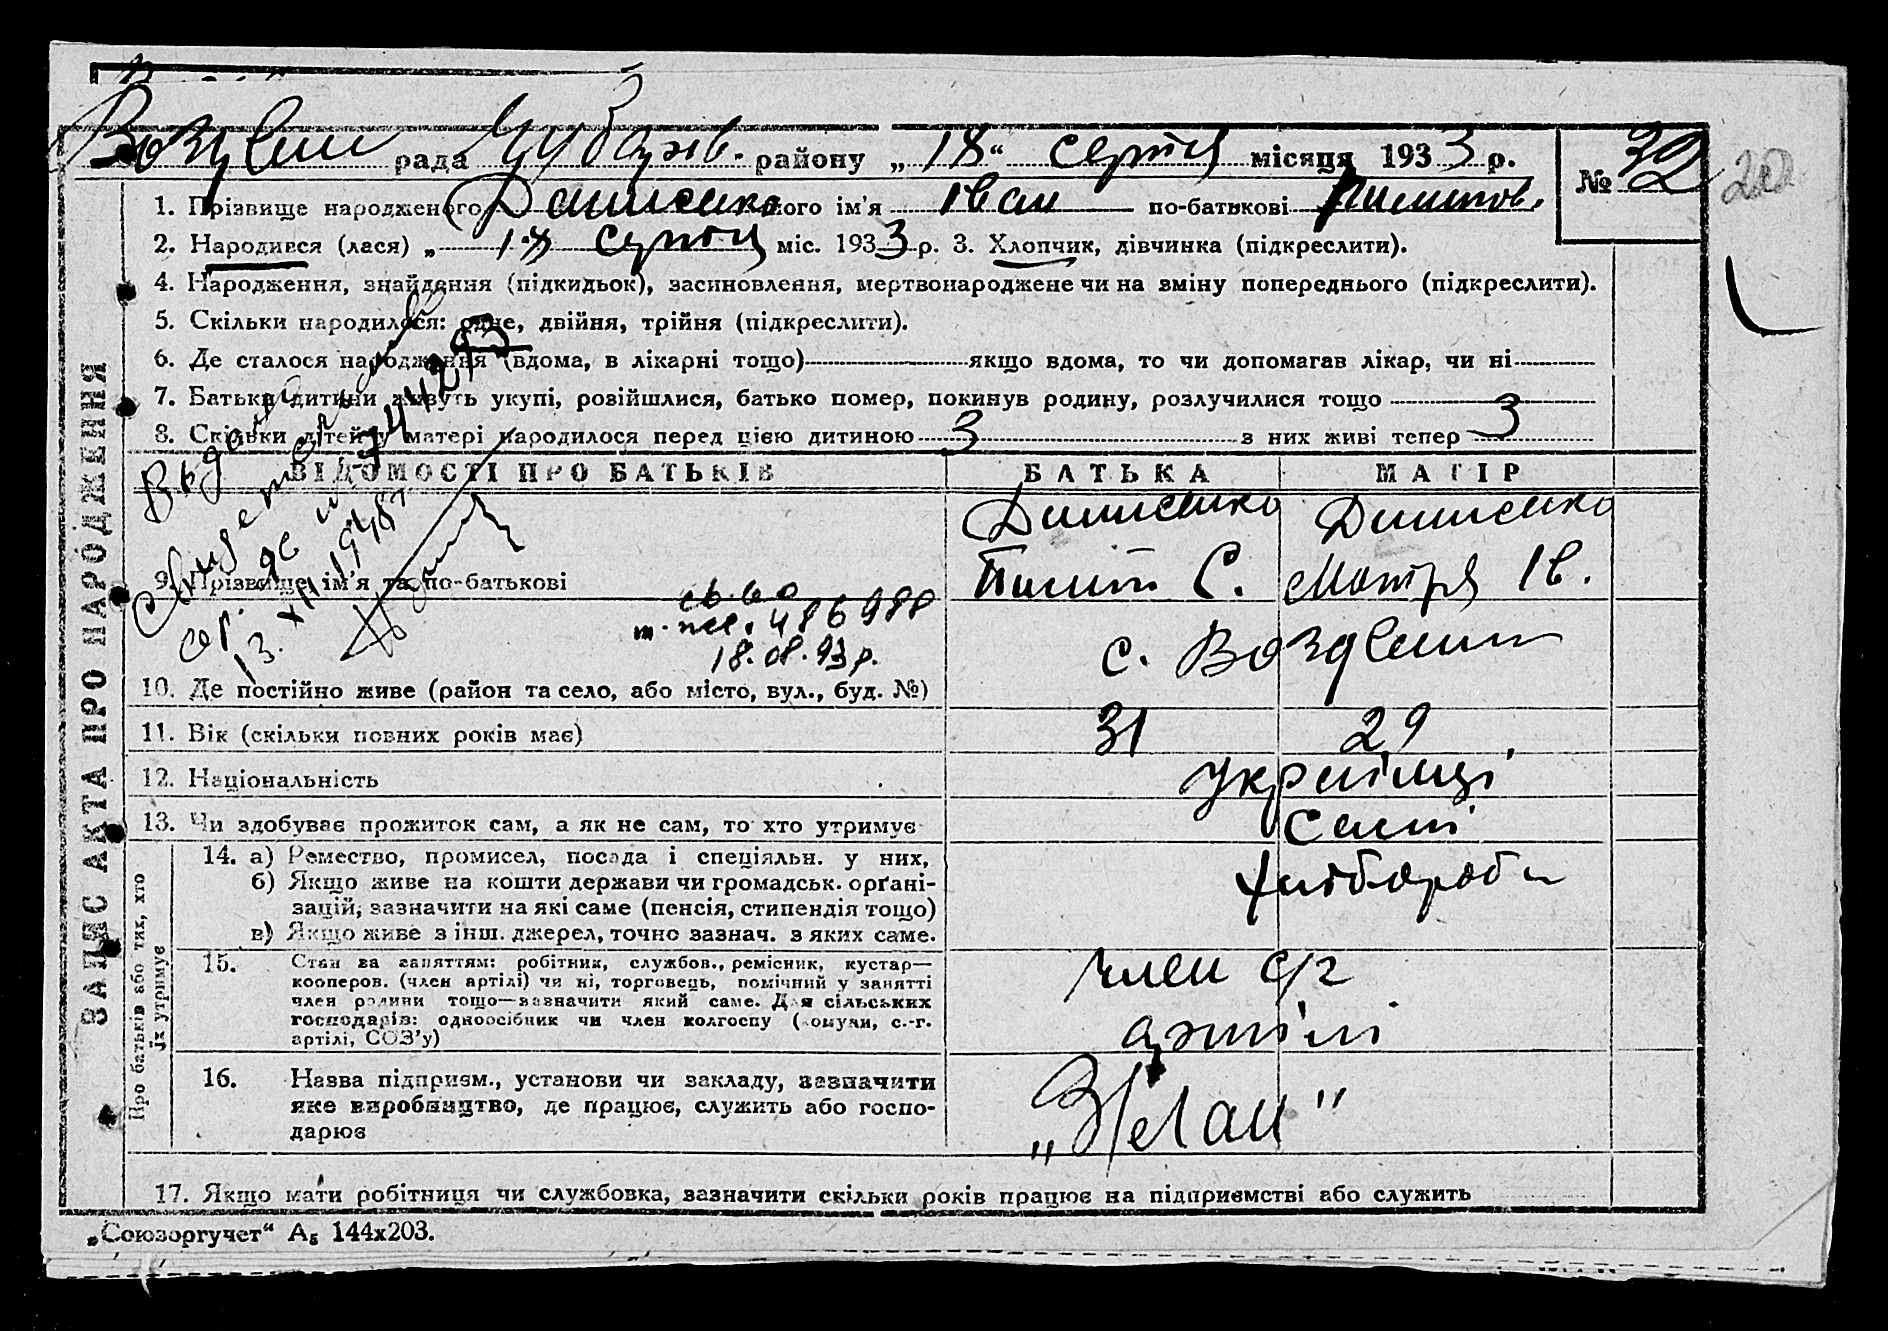 рада Чубарів. району „18“ серпня місяця 1933 р.
№ 32
202
1. Прізвище народженого Денисенко його ім'я Іван по-батькові Пилипов.
2. Народився (лася) „ 17 серпня міс. 1933 р. 3. Хлопчик, дівчинка (підкреслити).
4. Народження, знайдення (підкидьок), засиновлення, мертвонароджене чи на зміну попереднього (підкреслити).
5. Скільки народилося: одне, двійня, трійня (підкреслити).
6. Де сталося народження (вдома, в лікарні тощо) якщо вдома, то чи допомагав лікар, чи ні
7. Батьки дитини живуть укупі, розійшлися, батько помер, покинув родину, розлучилися тощо
8. Скільки дітей у матері народилося перед цією дитиною 3 з них живі тепер 3
ВІДОМОСТІ ПРО БАТЬКІВ БАТЬКА МАТІР
9. Прізвище, ім'я та по-батькові Денисенко Пилип С. Денисенко Мотря Ів.
св-во
486988
18.08.93 р.
10. Де постійно живе (район та село, або місто, вул., буд. №) с.
11. Вік (скільки повних років має) 31 29
12. Національність Українці
13. Чи здобуває прожиток сам, а як не сам, то хто утримує Самі
Про батьків або тих, хто їх утримує
14. а) Ремество, промисел, посада і спеціяльн. у них, хлібороби
б) Якщо живе на кошти держави чи громадськ. орґані-
зацій, зазначити на які саме (пенсія, стипендія тощо)
в) Якщо живе з інш. джерел, точно зазнач. з яких саме.
15. Стан за заняттям: робітник, службов., ремісник, кустар— член с/г
кооперов. (член артілі) чи ні, торговець, помічний у занятті
член родини тощо—зазначити який саме. Для сільських
господарів: одноосібник чи член колгоспу (комуни, с.-г. артілі
артілі, СОЗ'у)
16. Назва підприєм., установи чи закладу, зазначити
яке виробництво, де працює, служить або госпо-
дарює
17. Якщо мати робітниця чи службовка, зазначити скільки років працює на підприємстві або служить
„Союзоргучет“ А5 144х203.
ЗАПИС АКТА ПРО НАРОДЖЕННЯ